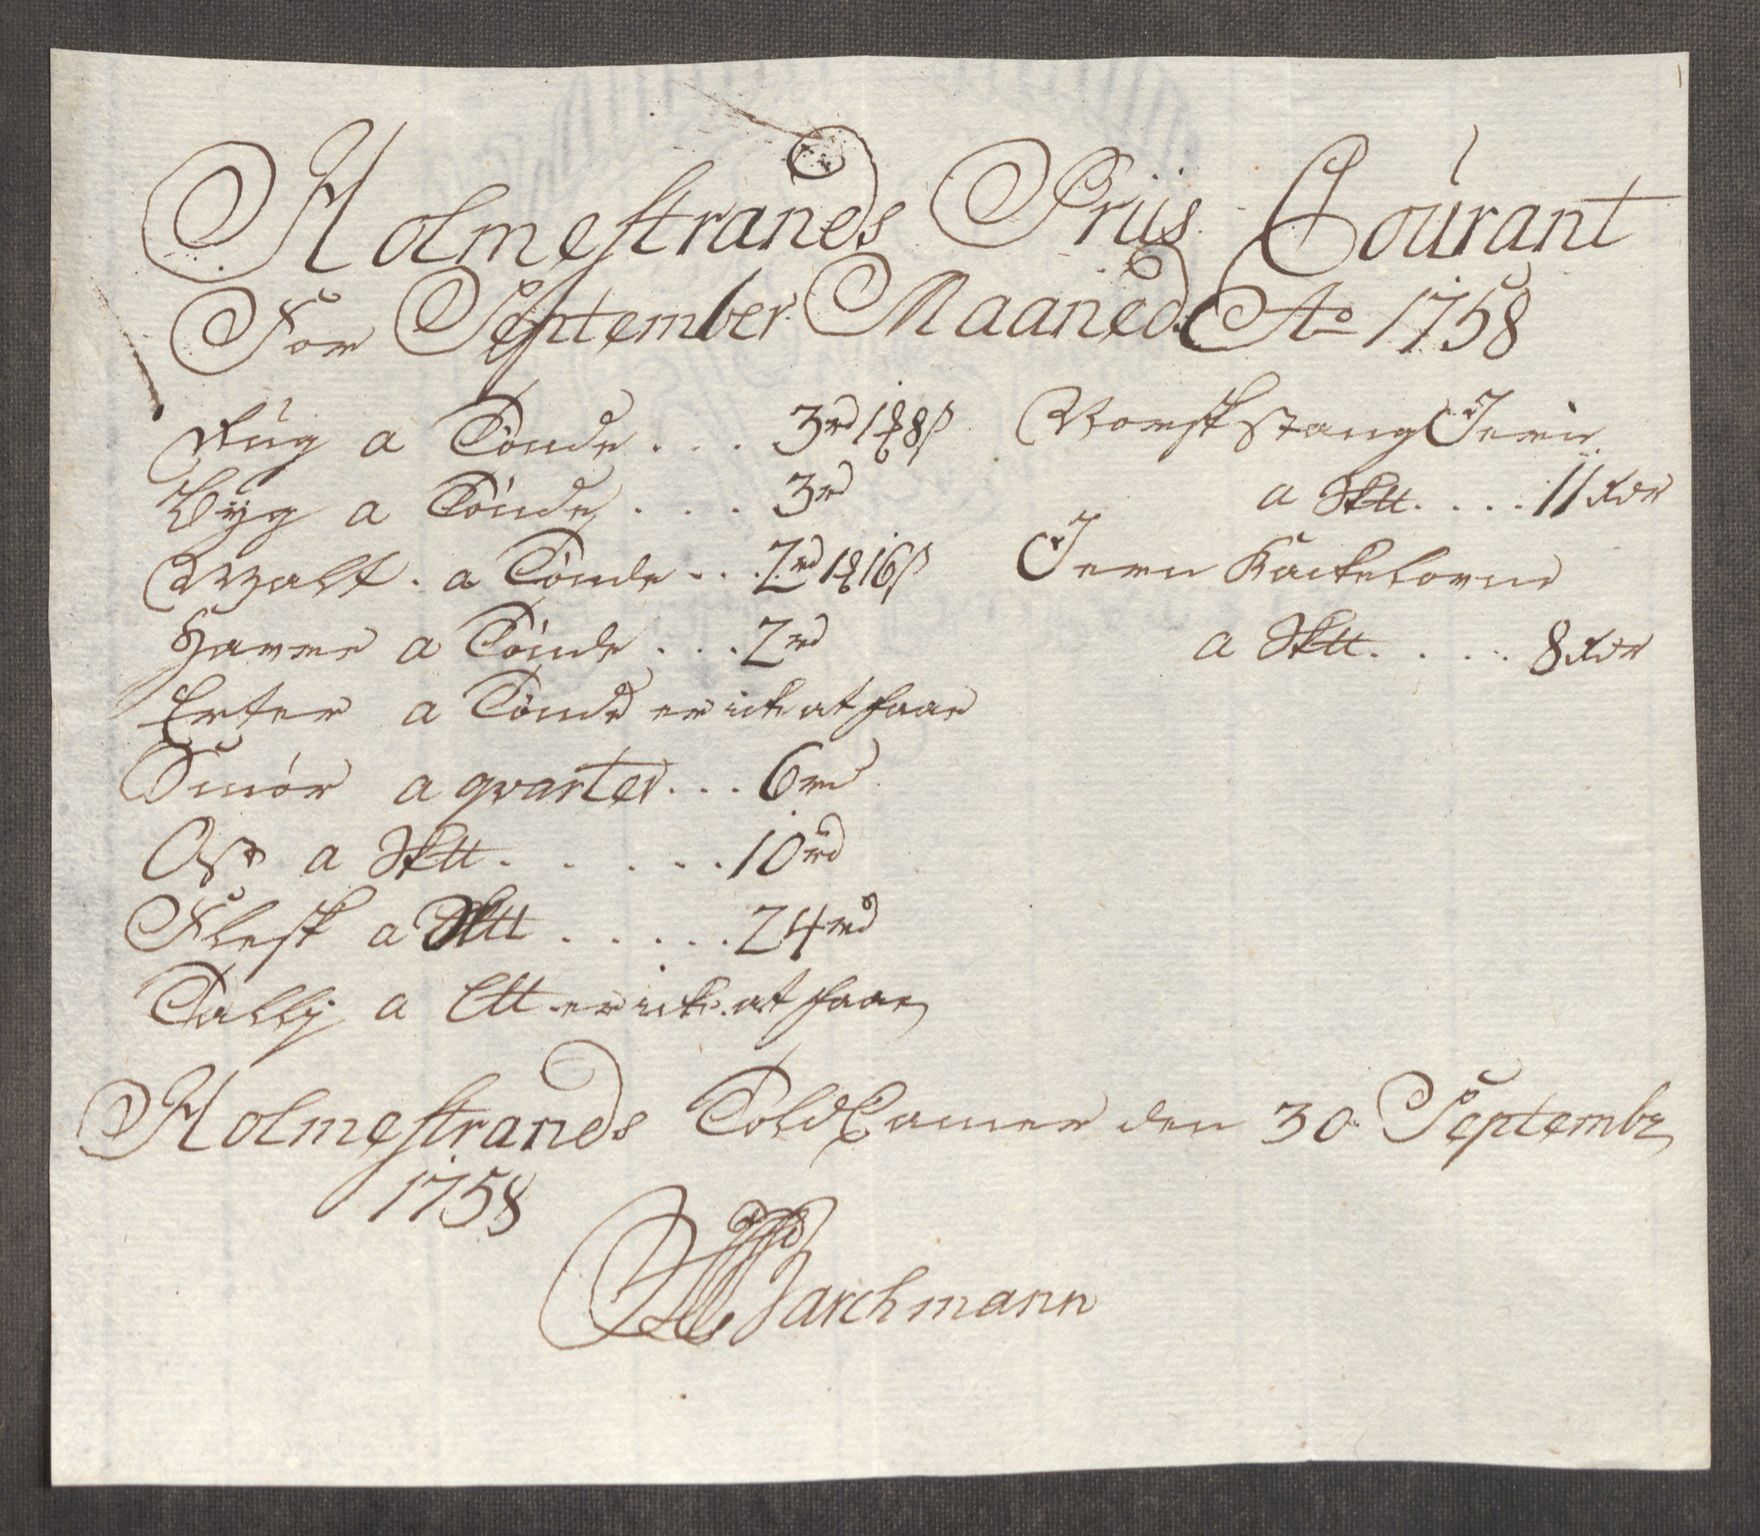 Holmestrands Priis Courant
For September Maaned Ao 1758
Rúg a Tønde . . . 3rd 1 8ß
Býg a Tønde . . . 3rd
Malt . a Tønde . . . 2rd 1 16ß
Hafre a Tønde . . . 2rd
Erter a Tønde er icke at faae
Smør a qvarter . . . 6rd
Ost a Sktt . . . . . . 10rd
Flesk a Sktt . . . . . . 24rd
Tallig a Ltt er icke at faae
Norsk Stang Jern
a Sktt. . . . . 11 Rdr
Jern Kackelovne
a Sktt. . . . . 8 Rdr
Holmestrands Told Camer den 30 Septembr
1758
Barchmann